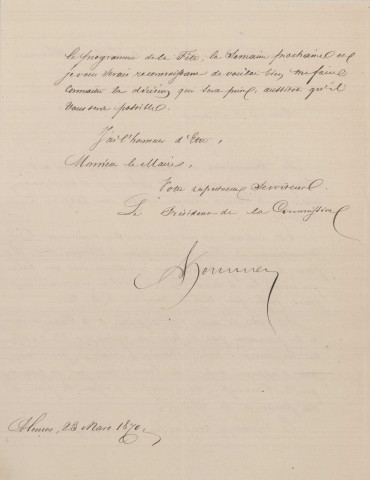 le programme de la Fête, la Semaine prochaine et
je vous serais reconnaissant de vouloir bien me faire
connaître la décision qui sera prise, aussitôt qu'il
vous sera possible.
J'ai l'honneur d'Etre,
Monsieur le Maire,
Votre respectueux Serviteur.
Le Président de la Commission
23 Mars